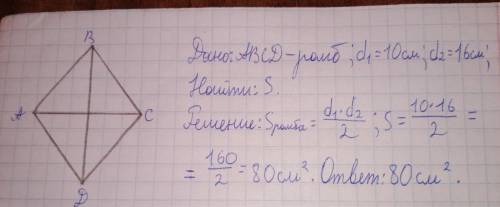 B
Дано: ABCD-ромб; d1=10см; d2=16см;
Найти: S.
A
C
Решение: Sромба = d1·d2/2; S = 10·16/2 =
= 160/2 = 80см². Ответ: 80см².
D